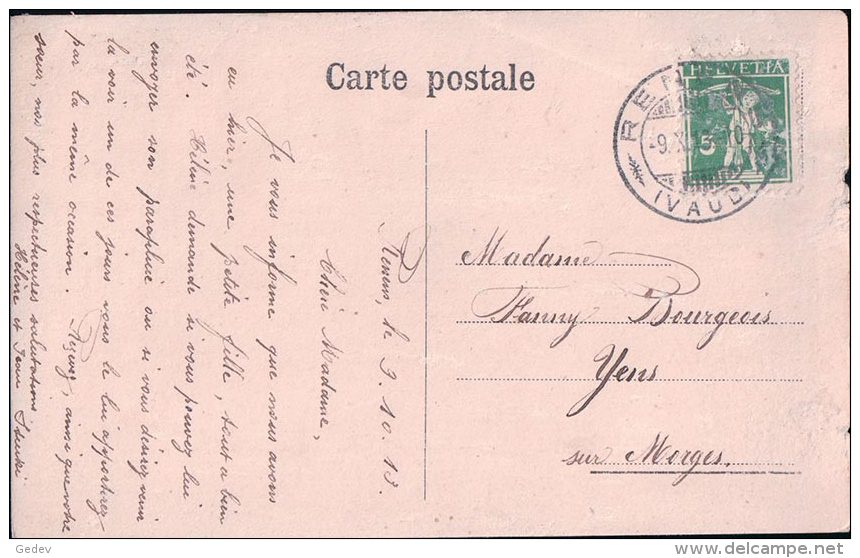 Carte postale
HELVETIA
5
RENENS
(VAUD)
Madame
Fanny Bourgeois
Yens
sur Morges.
Renens, le 9.10.13.
Chère Madame,
Je vous informe que nous avons
eu hier, une petite fille, tout a bien
été. Hélène demande si vous pouvez lui
envoyer son parapluie ou si vous désirez venir
la voir un de ces jours vous le lui apporterez
par la même occasion. Agréez, ainsi que votre
sœur, nos plus respectueuses salutations
Hélène et Jean
Gedev
delcampe.net